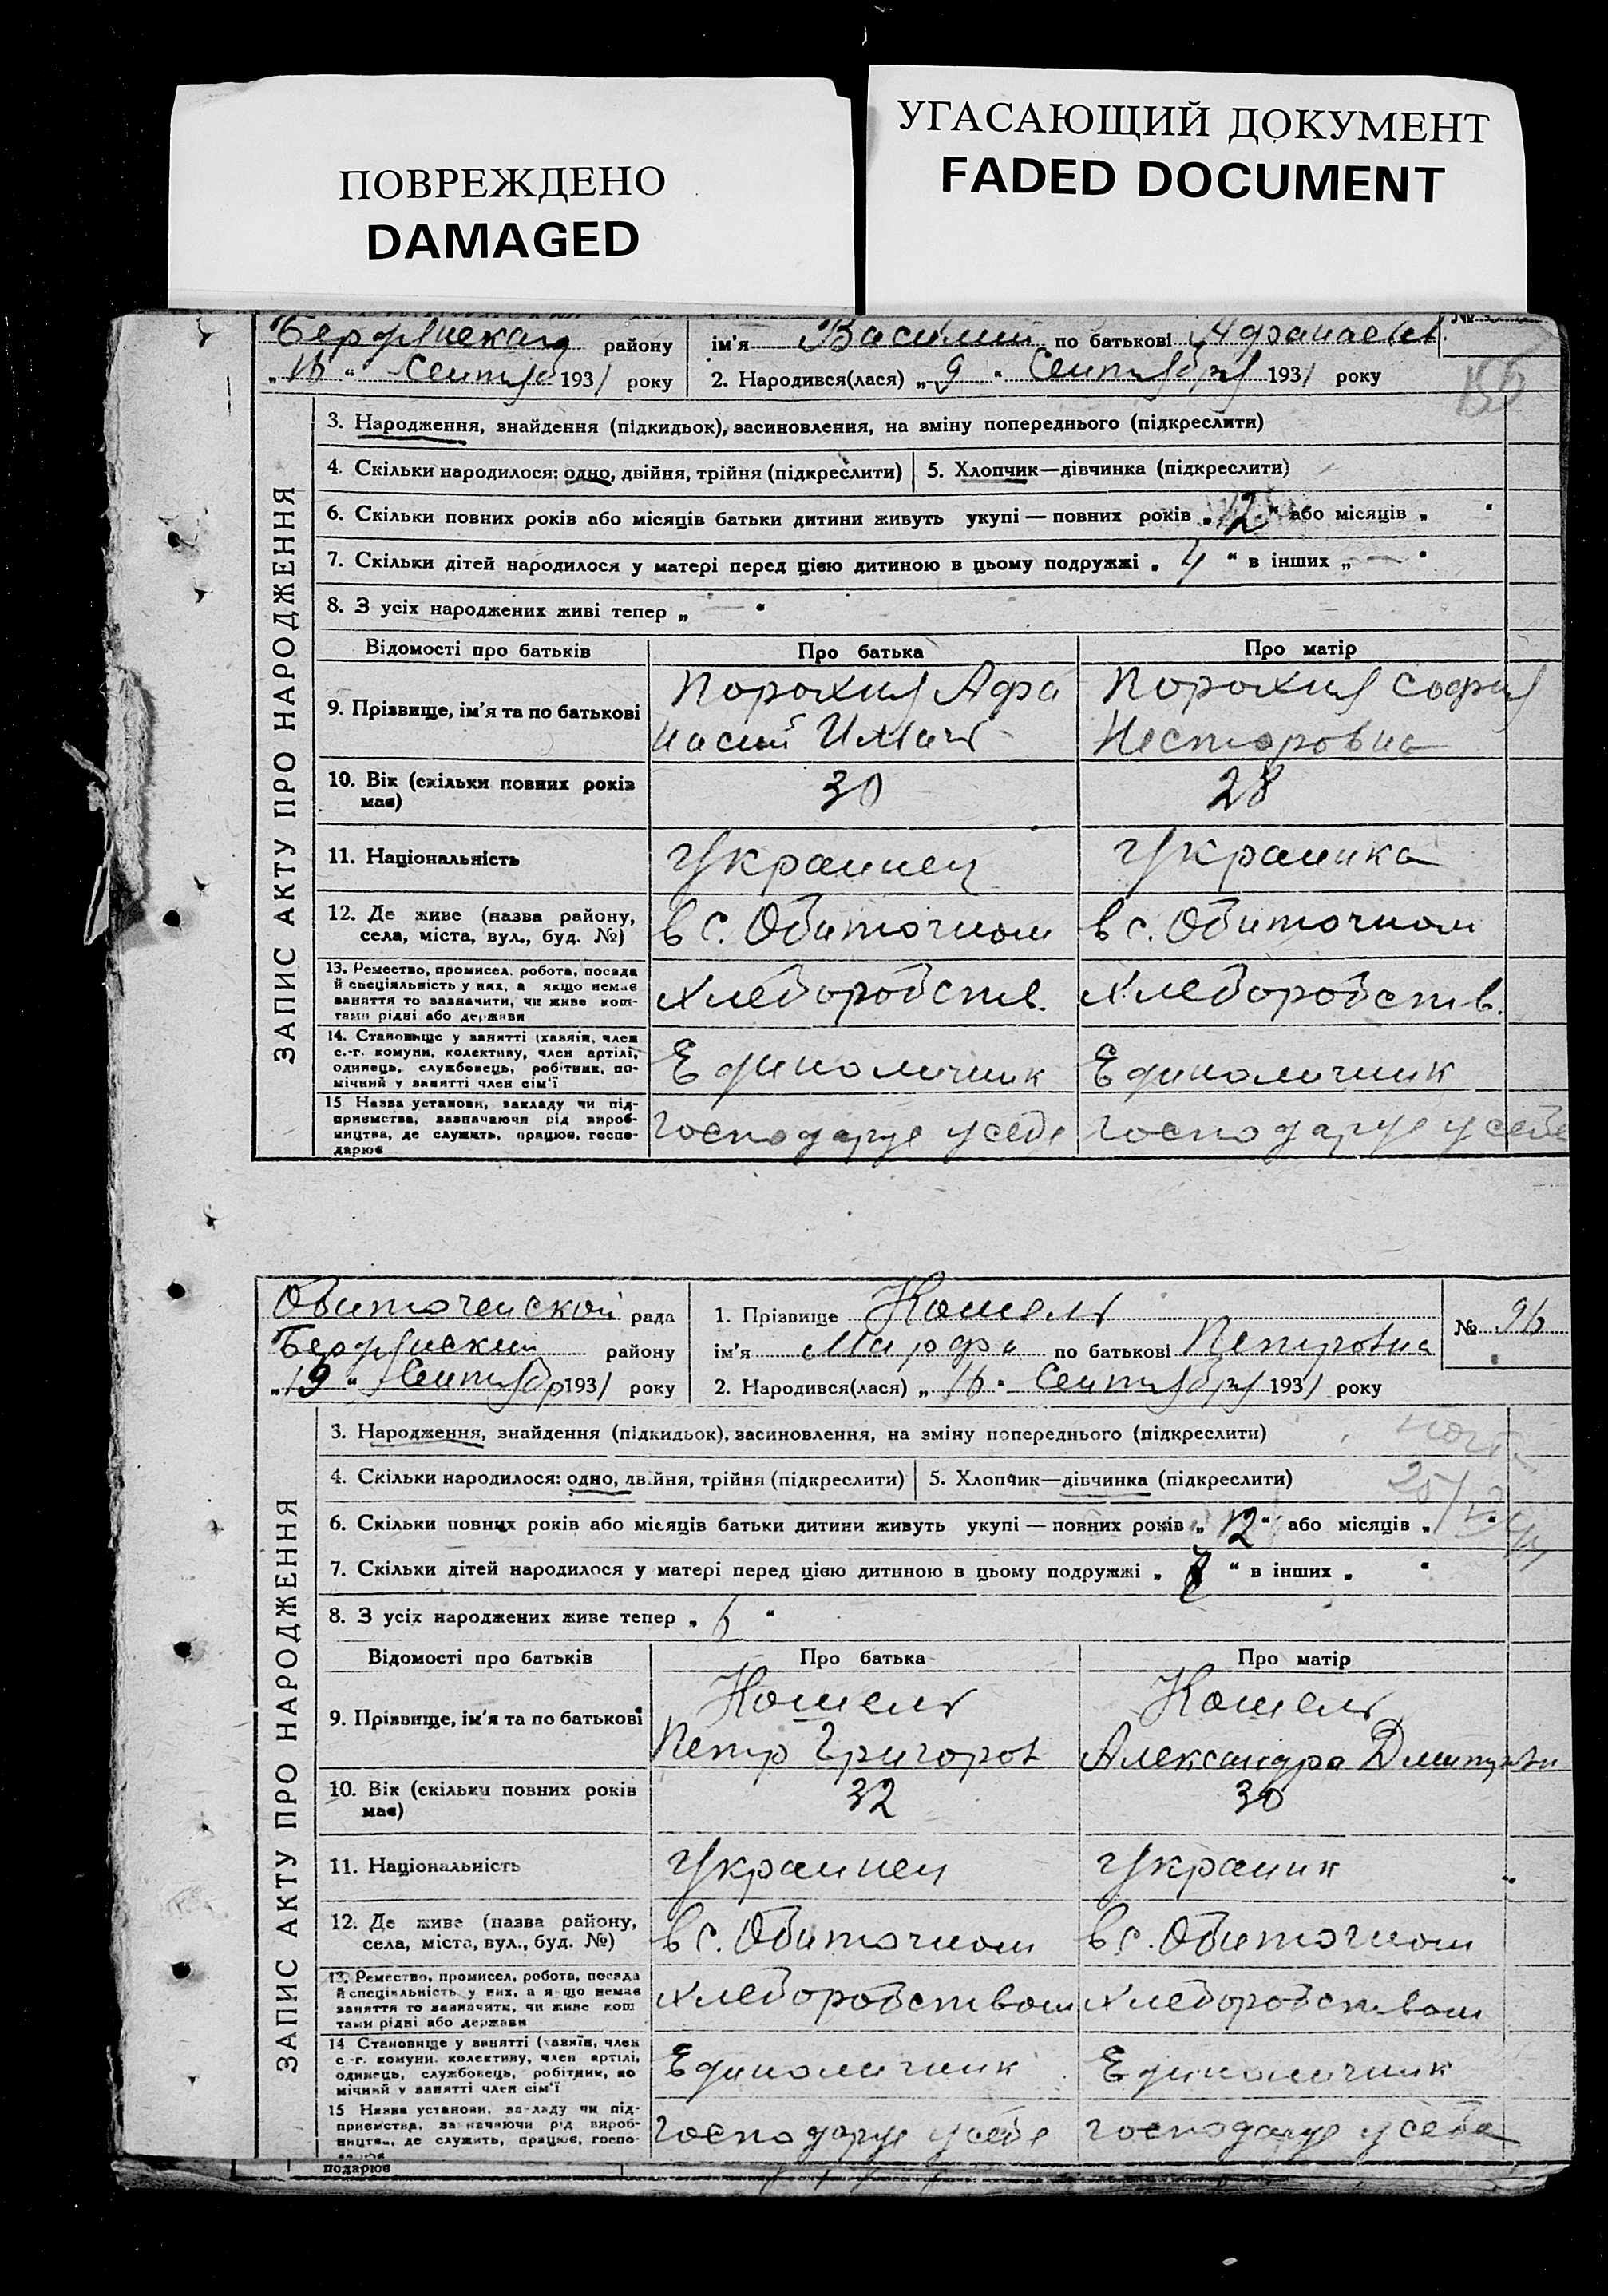 ПОВРЕЖДЕНО
DAMAGED
УГАСАЮЩИЙ ДОКУМЕНТ
FADED DOCUMENT
району
ім'я Василий по батькові
„16“ Сентября 1931 року
2. Народився(лася) „9“ Сентября 1931 року
ЗАПИС АКТУ ПРО НАРОДЖЕННЯ
3. Народження, знайдення (підкидьок), засиновлення, на зміну попереднього (підкреслити)
4. Скільки народилося: одно, двійня, трійня (підкреслити)
5. Хлопчик—дівчинка (підкреслити)
6. Скільки повних років або місяців батьки дитини живуть укупі — повних років „12“ або місяців „ “
7. Скільки дітей народилося у матері перед цією дитиною в цьому подружжі „4“ в інших „—“
8. З усіх народжених живі тепер „—“
Відомості про батьків
Про батька
Про матір
9. Прізвище, ім'я та по батькові
Порохня Афа
насий
Порохня София
Несторовна
10. Вік (скільки повних років
має)
30
28
11. Національність
Украинец
Украинка
12. Де живе (назва району,
села, міста, вул., буд. №)
в с. Обиточном
в с. Обиточном
13. Ремество, промисел, робота, посада
й спеціяльність у них, а якщо немає
заняття то зазначити, чи живе кош-
тами рідні або держави
хлеборобств.
хлеборобств.
14. Становище у занятті (хазяїн, член
с.-г. комуни, колективу, член артілі,
одинець, службовець, робітник, по-
мічний у занятті член сім'ї
Единоличник
Единоличник
15 Назва установи, закладу чи під-
приємства, зазначаючи рід вироб-
ництва, де служить, працює, госпо-
дарює
Господарує у себе
Господарує у себе
Обиточенской рада
1. Прізвище Кошель
№ 96
Бердянский району
ім'я Марфа по батькові Петровна
„19“ Сентябр 1931 року
2. Народився(лася) „16“ Сентября 1931 року
ЗАПИС АКТУ ПРО НАРОДЖЕННЯ
3. Народження, знайдення (підкидьок), засиновлення, на зміну попереднього (підкреслити)
4. Скільки народилося: одно, двійня, трійня (підкреслити)
5. Хлопчик—дівчинка (підкреслити)
6. Скільки повних років або місяців батьки дитини живуть укупі — повних років „12“ або місяців „ “
7. Скільки дітей народилося у матері перед цією дитиною в цьому подружжі „ “ в інших „ “
8. З усіх народжених живе тепер „6“
Відомості про батьків
Про батька
Про матір
9. Прізвище, ім'я та по батькові
Кошель
Петр Григоров
Кошель
Александра
10. Вік (скільки повних років
має)
32
30
11. Національність
Украинец
Украин
12. Де живе (назва району,
села, міста, вул., буд. №)
в с. Обиточном
в с. Обиточном
13. Ремество, промисел, робота, посада
й спеціяльність у них, а якщо немає
заняття то зазначити, чи живе кош
тами рідні або держави
хлеборобством
хлеборобством
14 Становище у занятті (хазяїн, член
с.-г. комуни, колективу, член артілі,
одинець, службовець, робітник, по
мічний у занятті член сім'ї
Единоличник
Единоличник
15 Назва установи, закладу чи під-
приємства, зазначаючи рід вироб-
ництва, де служить, працює, госпо-
Господарує у себе
Господарує у себе
подарює